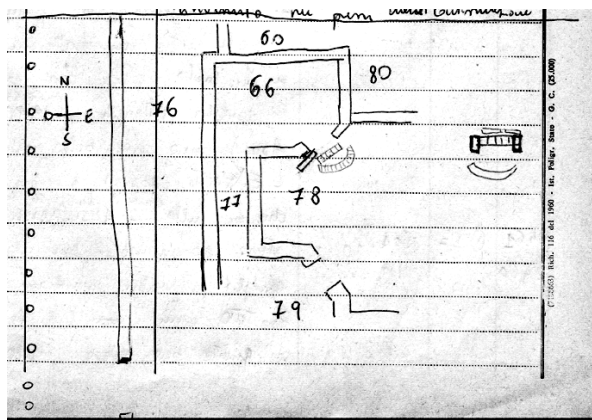 60
66
80
N
O E
S
76
77
78
79
(7102663) Rich. 116 del 1960 - Ist. Poligr. Stato - G. C. (25.000)